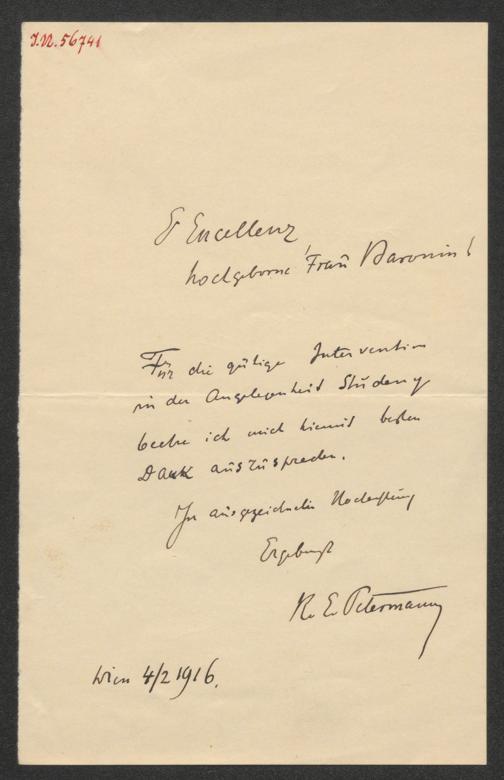 I.N. 56741
Er Excellenz
hochgeborne Frau Baronin!
Für die gütige Intervention
in der Angelegenheit Studeny
beehre ich mich hiemit besten
Dank auszusprechen.
In ausgezeichneter Hochachtung
Ergebenst
R. E. Petermann
Wien 4/2 1916.